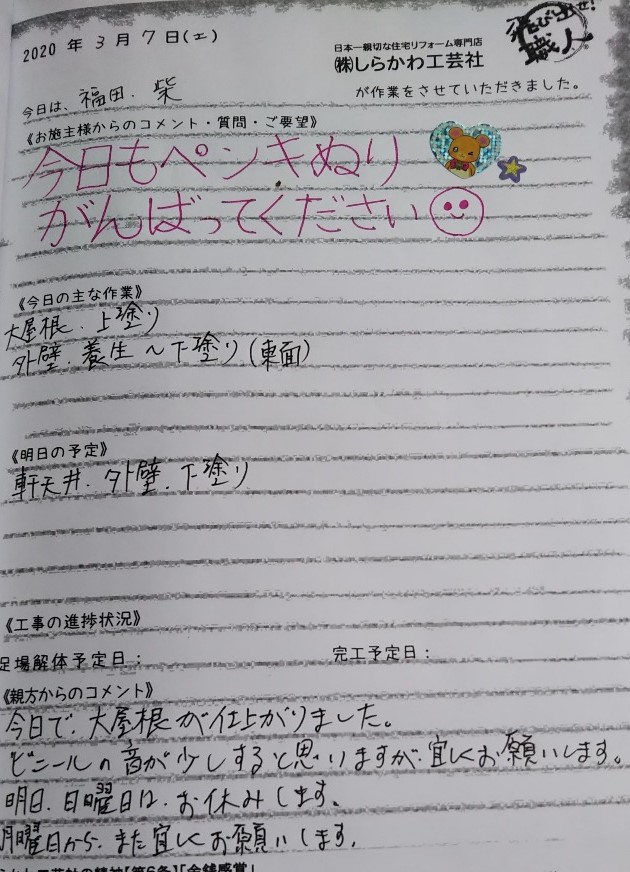 2020 年 3 月 7 日(土)
日本一親切な住宅リフォーム専門店
㈱しらかわ工芸社
飛び出せ!
職人
今日は、福田. 柴 が作業をさせていただきました。
《お施主様からのコメント・質問・ご要望》
今日もペンキぬり
がんばってください
《今日の主な作業》
大屋根. 上塗り
外壁. 養生～下塗り(東面)
《明日の予定》
軒天井. 外壁. 下塗り
《工事の進捗状況》
足場解体予定日： 完工予定日：
《親方からのコメント》
今日で、大屋根が仕上がりました。
ビニールの音が少しすると思いますが、宜しくお願いします。
明日、日曜日は、お休みします。
月曜日から、また宜しくお願いします。